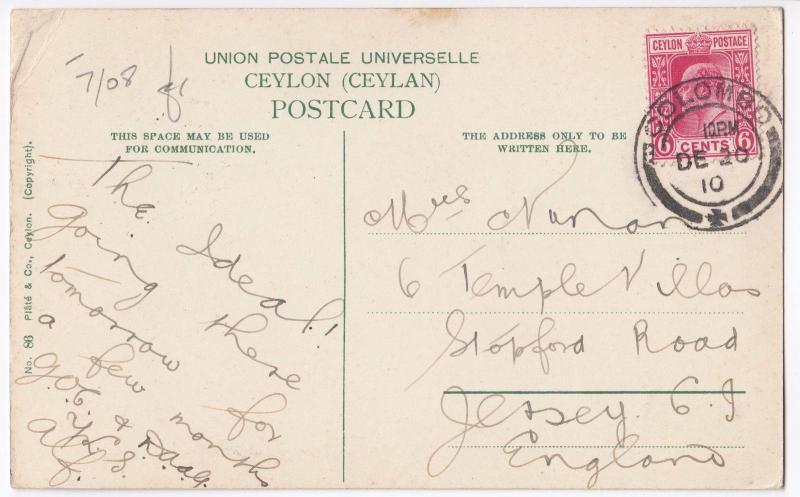 7/08
UNION POSTALE UNIVERSELLE
CEYLON (CEYLAN)
POSTCARD
THIS SPACE MAY BE USED
FOR COMMUNICATION.
THE ADDRESS ONLY TO BE
WRITTEN HERE.
No. 86 Plâté & Co., Ceylon. (Copyright).
The Ideal!
going there
tomorrow for
a few months
Alf.
CEYLON POSTAGE
6 CENTS 6
COLOMBO
10PM
DE 20
10
Mrs
6 Temple Villas
Stopford Road
Jersey C.I
England